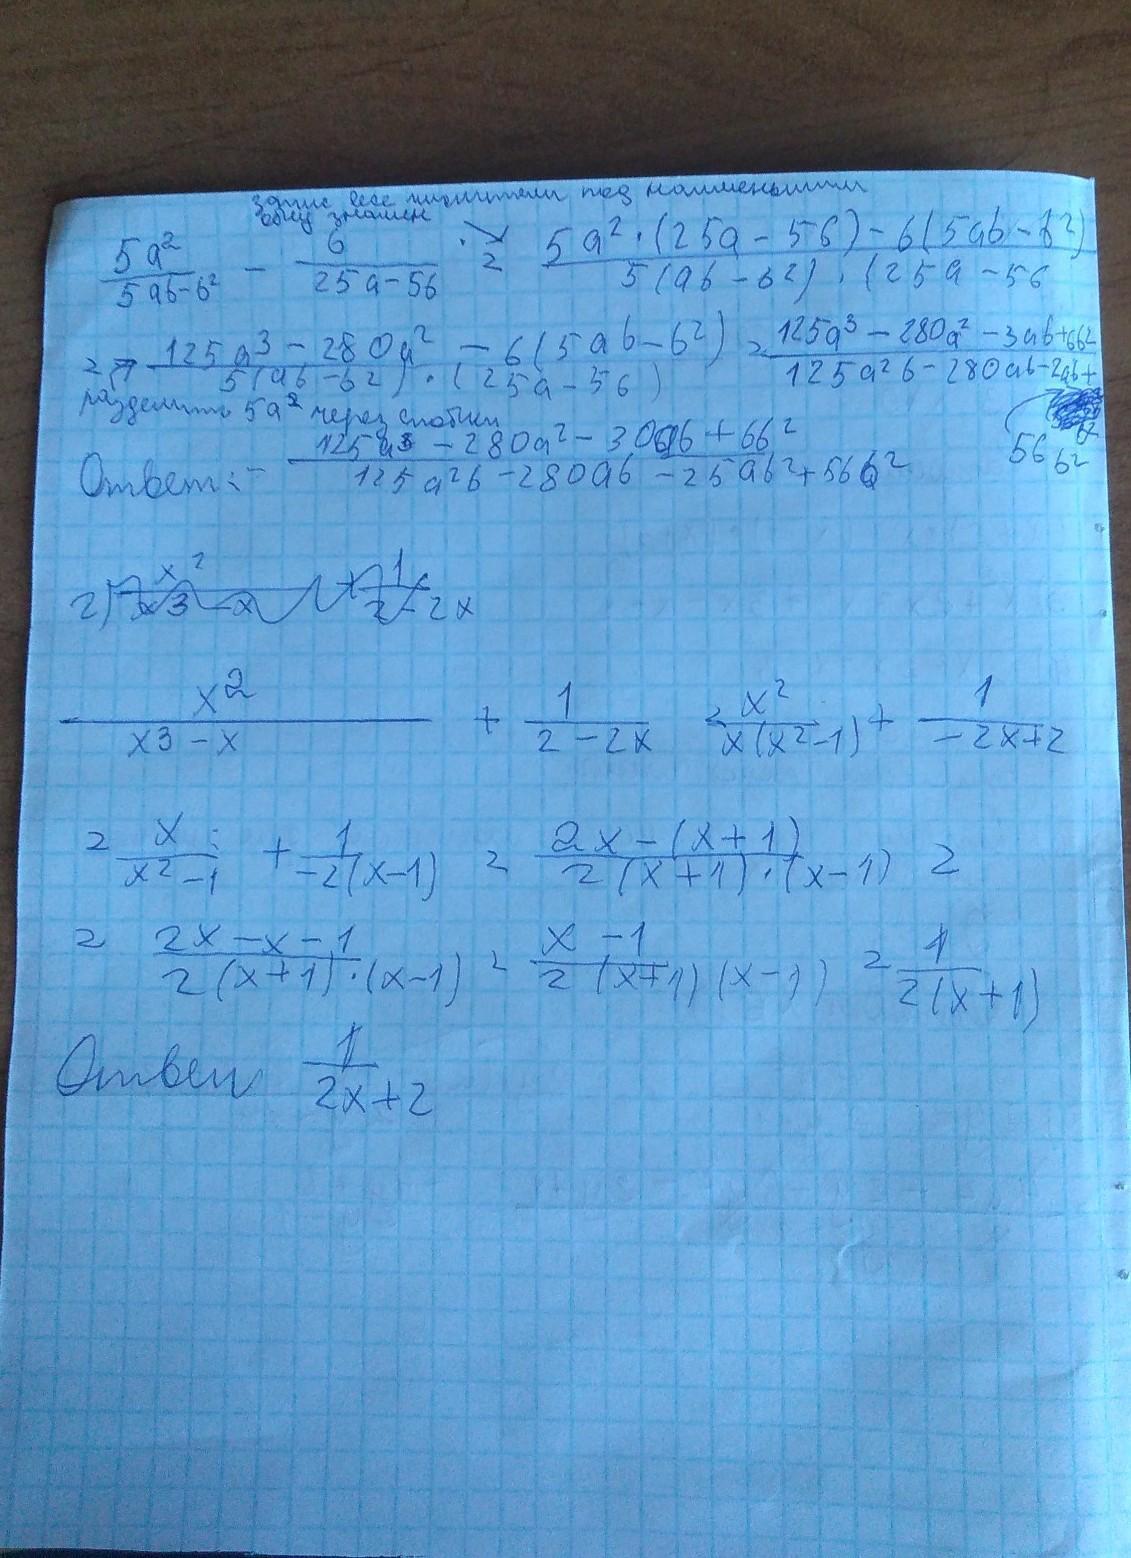 запис все числители под наименьшим
общ знамен
5a²/(5ab-b²) - 6/(25a-56) = (5a²·(25a-56)-6(5ab-b²))/(5(ab-b²)·(25a-56
= (125a³-280a²-6(5ab-b²))/(5(ab-b²)·(25a-56)) = (125a³-280a²-3ab+6b²)/(125a²b-280ab-2ab+
разделить 5a² через скобки
56b²
Ответ: - (125a³-280a²-30ab+6b²)/(125a²b-280ab-25ab²+56b²
x²/(x3-x) + 1/(2-2x) = x²/(x(x²-1)) + 1/(-2x+2)
= x/(x²-1) + 1/(-2(x-1)) = (2x-(x+1))/(2(x+1)·(x-1)) =
= (2x-x-1)/(2(x+1)·(x-1)) = (x-1)/(2(x+1)(x-1)) = 1/(2(x+1))
Ответ 1/(2x+2)